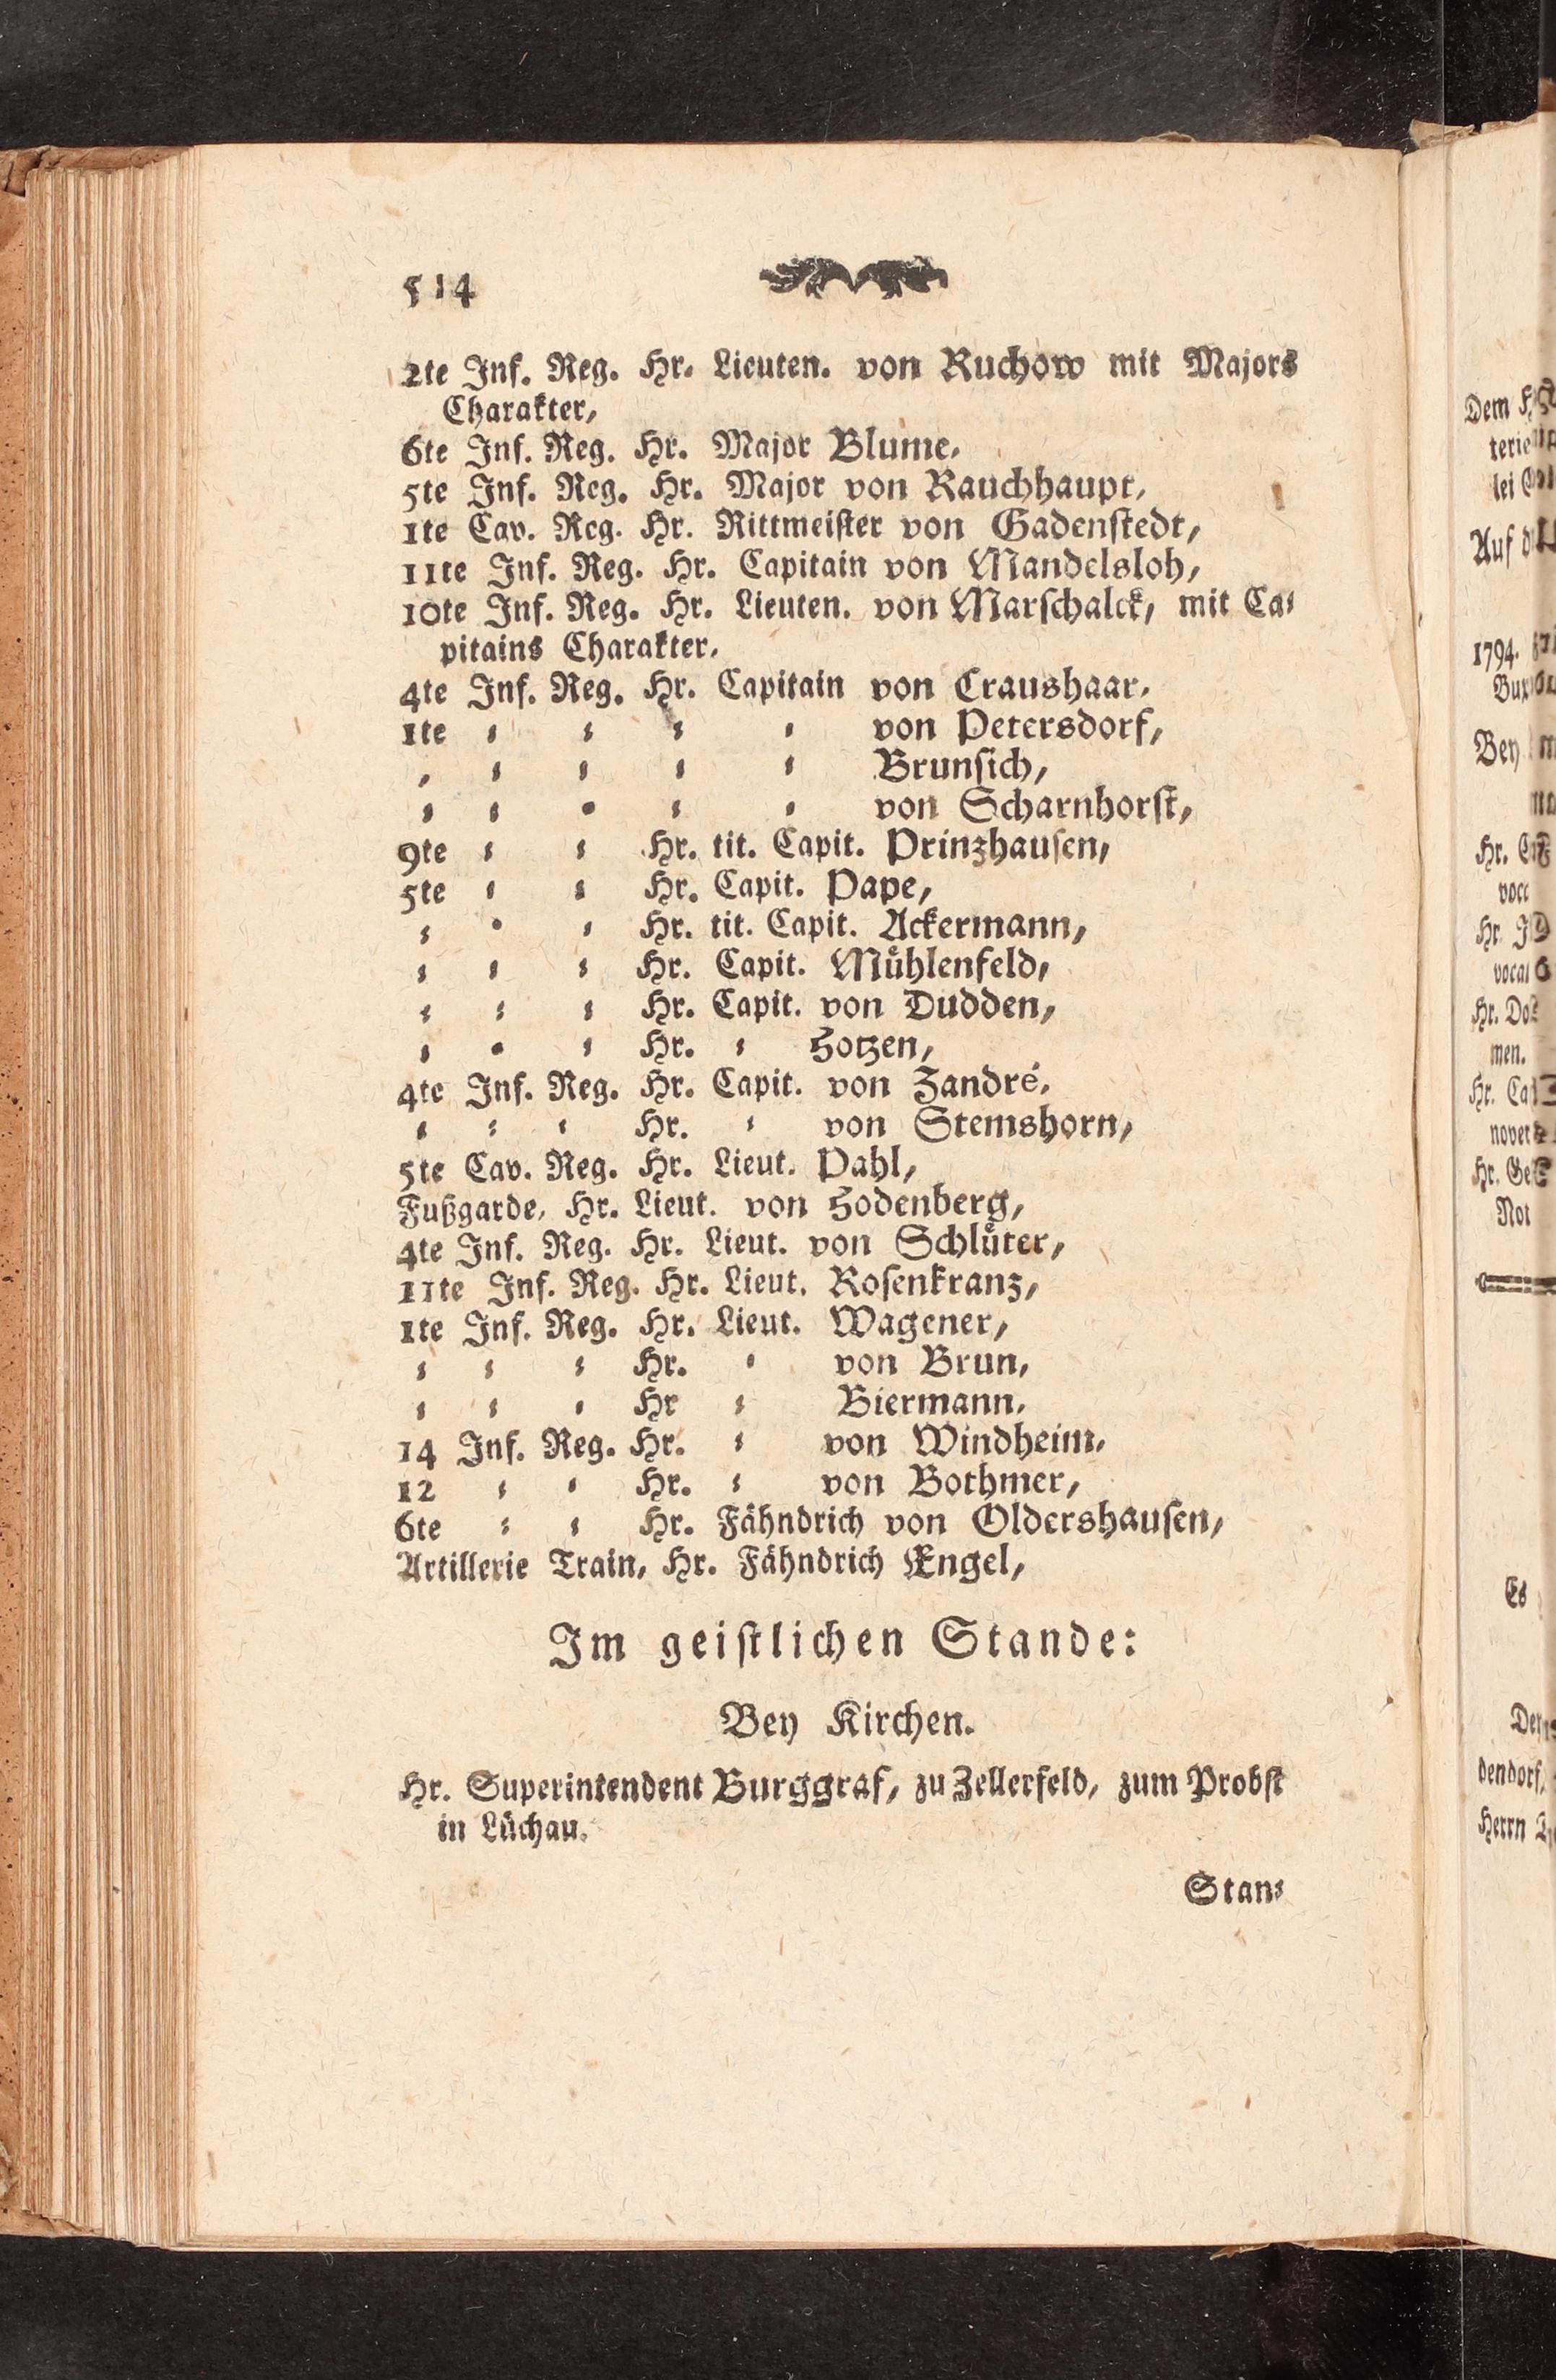 514
2te Inf. Reg. Hr. Lieuten. von Ruchow mit Majors
Charakter,
6te Inf. Reg. Hr. Major Blume,
5te Inf. Reg. Hr. Major von Rauchhaupt,
1te Cav. Reg. Hr. Rittmeiſter von Gadenſtedt,
11te Inf. Reg. Hr. Capitain von Mandelsloh,
10te Inf. Reg. Hr. Lieuten. von Marſchalck, mit Ca⸗
pitains Charakter,
4te Inf. Reg. Hr. Capitain von Craushaar,
1te ⸗ ⸗ ⸗ ⸗ von Petersdorf,
⸗ ⸗ ⸗ ⸗ ⸗ Brunſich,
⸗ ⸗ ⸗ ⸗ ⸗ von Scharnhorſt,
9te ⸗ ⸗ Hr. tit. Capit. Prinzhauſen,
5te ⸗ ⸗ Hr. Capit. Pape,
⸗ ⸗ ⸗ Hr. tit. Capit. Ackermann,
⸗ ⸗ ⸗ Hr. Capit. Mühlenfeld,
⸗ ⸗ ⸗ Hr. Capit. von Dudden,
⸗ ⸗ ⸗ Hr. ⸗ Hotzen,
4te Inf. Reg. Hr. Capit. von Zandré,
⸗ ⸗ ⸗ Hr. ⸗ von Stemshorn,
5te Cav. Reg. Hr. Lieut. Pahl,
Fußgarde, Hr. Lieut. von Hodenberg,
4te Inf. Reg. Hr. Lieut. von Schlüter,
11te Inf. Reg. Hr. Lieut. Roſenkranz,
1te Inf. Reg. Hr. Lieut. Wagener,
⸗ ⸗ ⸗ Hr. ⸗ von Brun,
⸗ ⸗ ⸗ Hr ⸗ Biermann,
14 Inf. Reg. Hr. ⸗ von Windheim,
12 ⸗ ⸗ Hr. ⸗ von Bothmer,
6te ⸗ ⸗ Hr. Fähndrich von Oldershauſen,
Artillerie Train, Hr. Fähndrich Engel,
Im geiſtlichen Stande:
Bey Kirchen.
Hr. Superintendent Burggraf, zu Zellerfeld, zum Probſt
in Lüchau.
Stan⸗
Dem
Auf
1794.
Bey
Hr.
Hr.
Hr.
men.
Hr.
Hr.
Es
dendorf,
Herrn